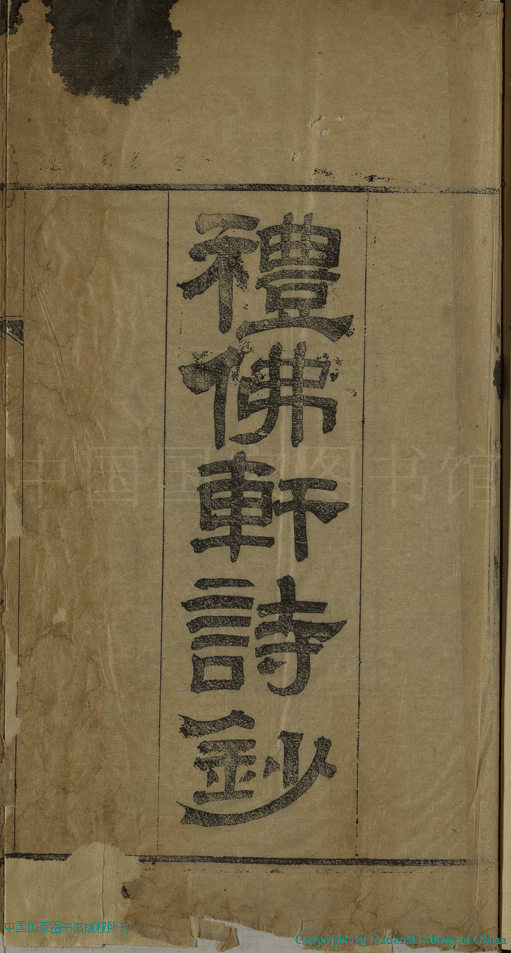 禮佛軒詩鈔
中国国家图书馆
中国国家图书馆版权所有
Copyright By National Library of China